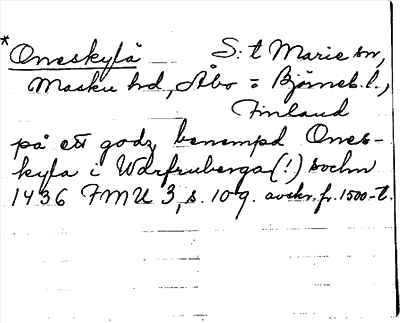 *Oneskylä S:t Marie sn,
Masku hd, Åbo = Björneb. l.,
Finland
på ett godz, benempd Ones-
kyla i Warfruberga (!) sochn
1436 FMU 3, s. 109. avskr. fr. 1500-t.